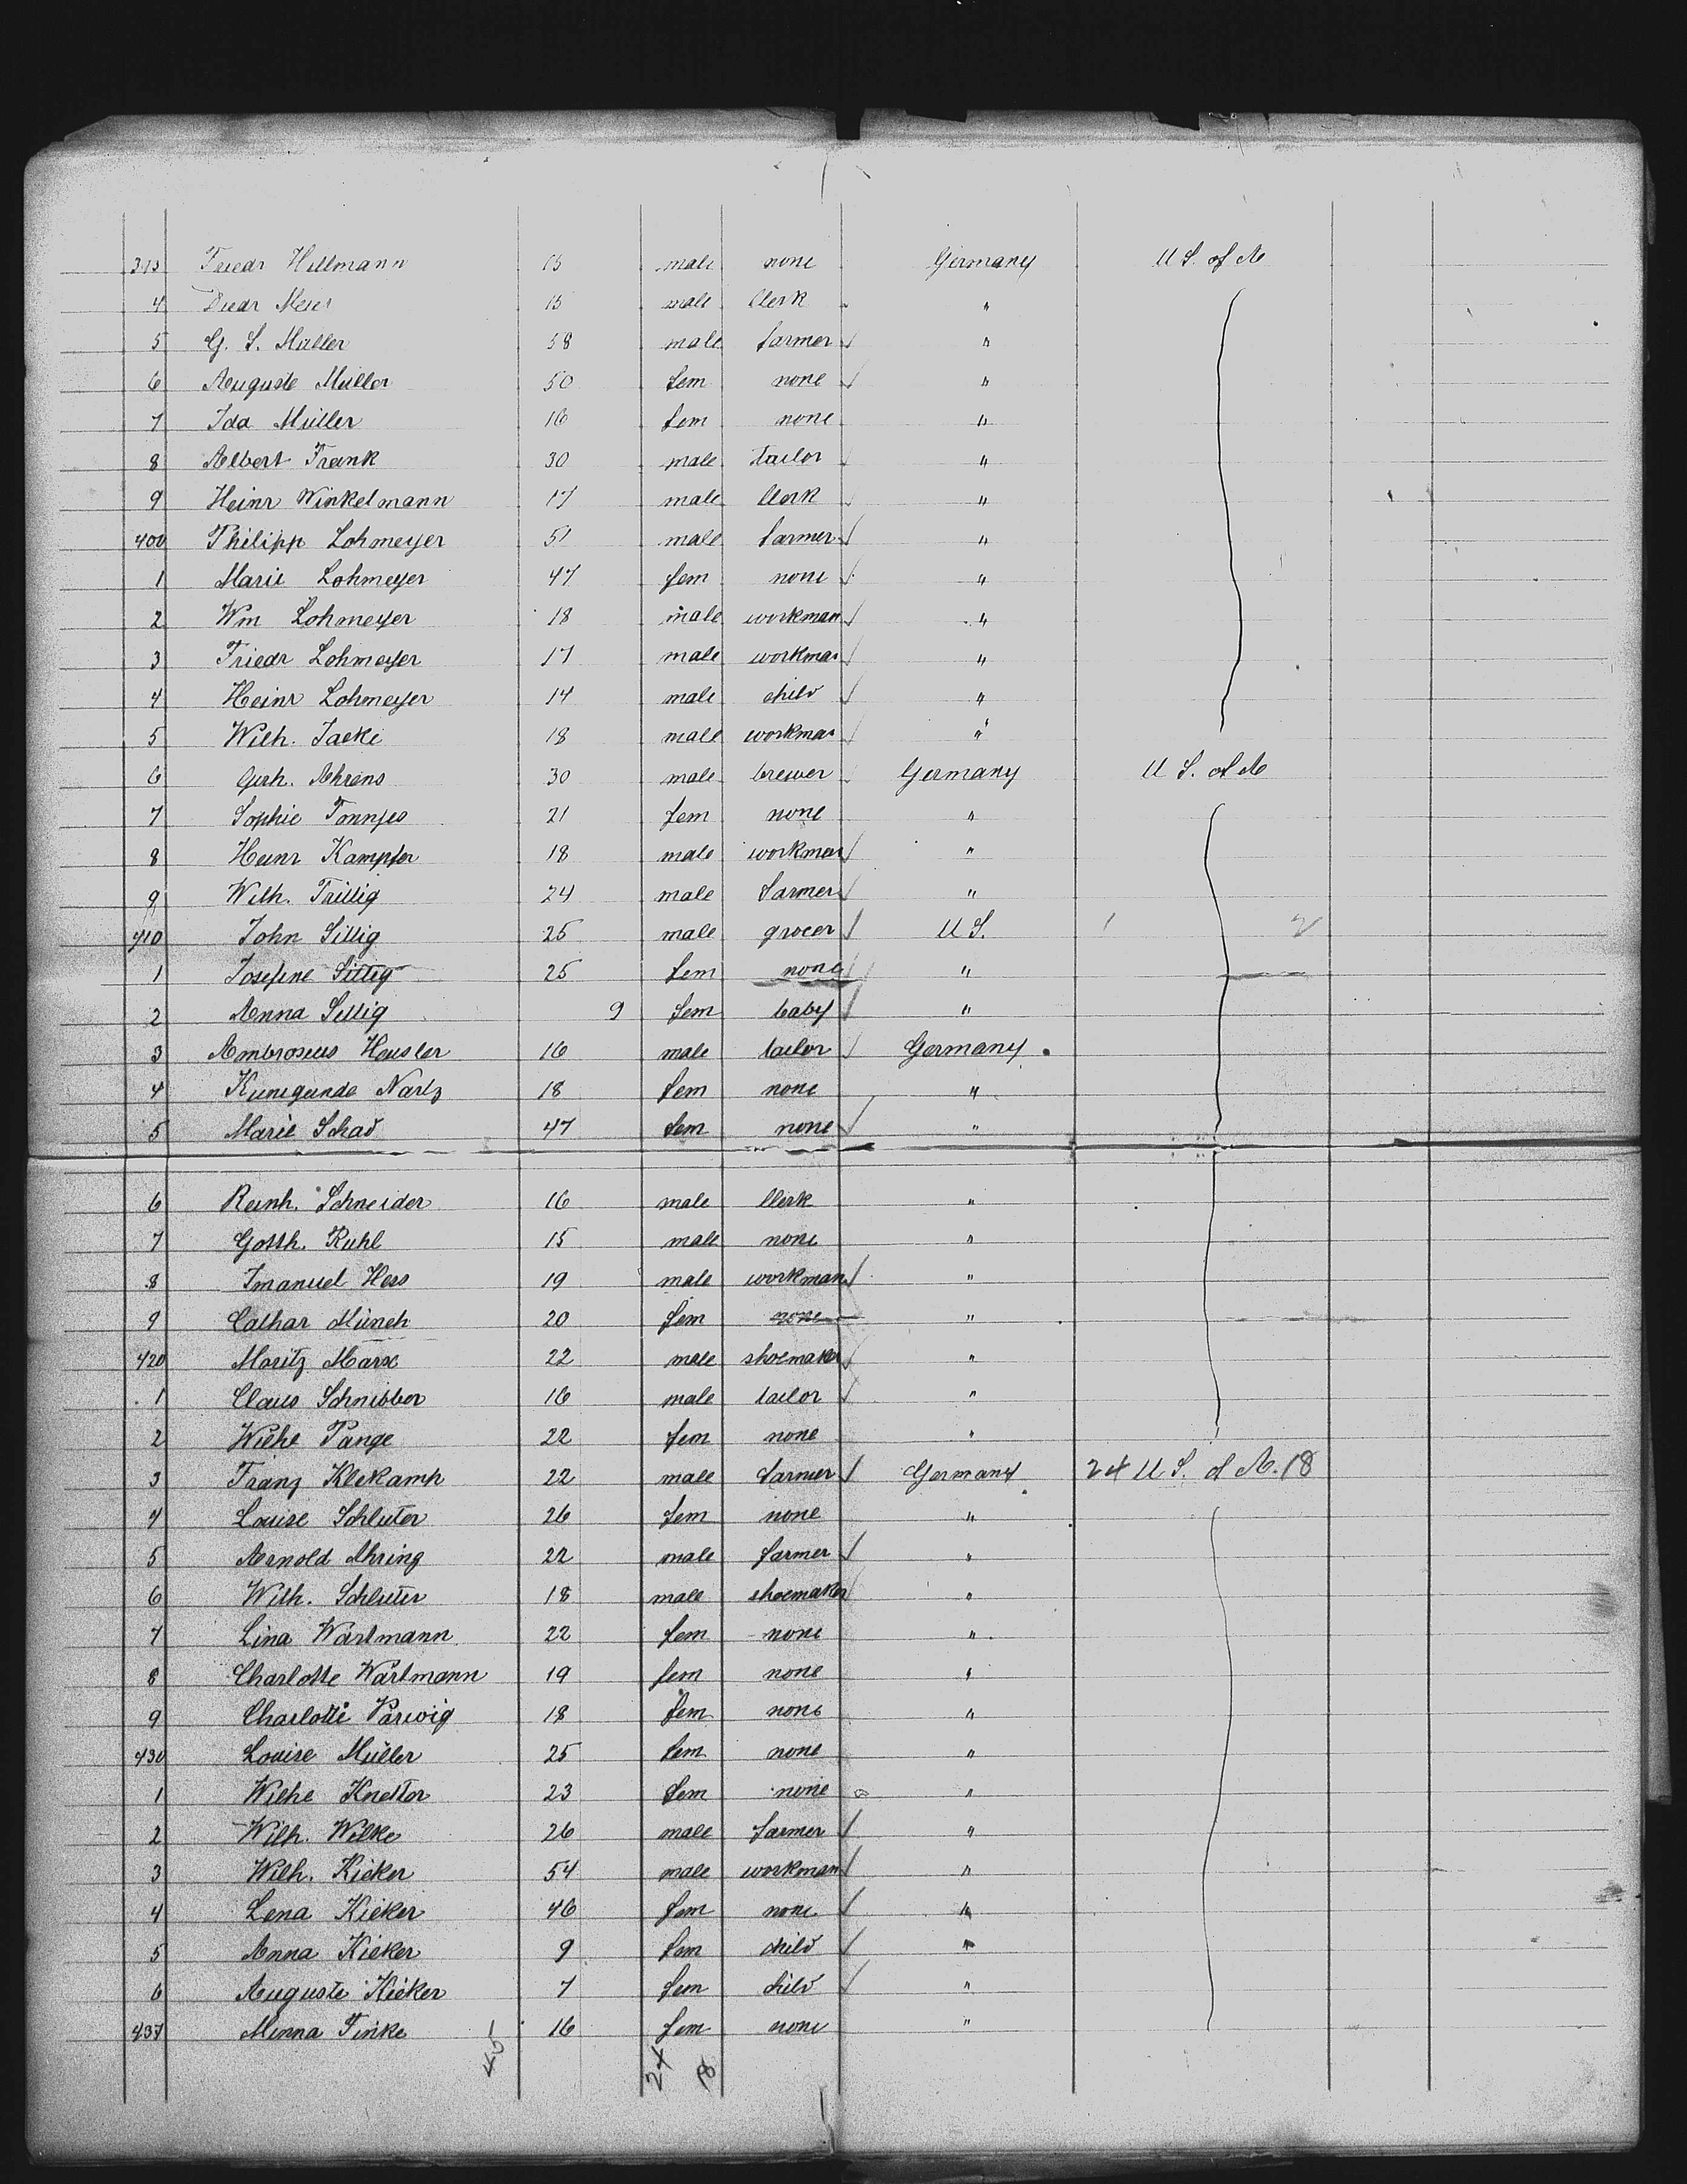 393 Friedr Hillmann 15 male none Germany U S. of A
4 Diedr Meier 15 male Clerk "
5 G. S. Müller 58 male farmer "
6 Auguste Müller 50 fem none "
7 Ida Müller 16 fem none "
8 Albert Frank 30 male tailor "
9 Heinr Winkelmann 17 male Clerk "
400 Philipp Lohmeyer 51 male farmer "
1 Marie Lohmeyer 47 fem none "
2 Wm Lohmeyer 18 male workman "
3 Friedr Lohmeyer 17 male workman "
4 Heinr Lohmeyer 14 male child "
5 Wilh. Jacke 18 male workman "
6 Gerh. Ahrens 30 male brewer Germany U S. of A
7 Sophie Tonnjes 21 fem none "
8 Heinr Kampfer 18 male workman "
9 Wilh. Trillig 24 male farmer "
410 John Sillig 25 male grocer U S. 1 2
1 Josefine Sittig 25 fem none "
2 Anna Sillig 9 fem baby "
3 Ambrosius Heusler 16 male tailor Germany
4 Kunigunde Nartz 18 fem none "
5 Marie Schad 47 fem none "
6 Reinh. Schneider 16 male Clerk "
7 Gotth. Ruhl 15 male none "
8 Imanuel Hess 19 male workman "
9 Cathar Münch 20 fem none "
420 Moritz Marx 22 male shoemaker "
1 Claus Schnibber 16 male tailor "
2 Wilhe Pange 22 fem none "
3 Franz Klekamp 22 male farmer Germany 24 U S. of A. 18
4 Louise Schluter 26 fem none "
5 Arnold Ahring 22 male farmer "
6 Wilh. Schluter 18 male shoemaker "
7 Lina Wartmann 22 fem none "
8 Charlotte Wartmann 19 fem none "
9 Charlotte Parwig 18 fem none "
430 Louise Müller 25 fem none "
1 Wilhe Knetter 23 fem none "
2 Wilh. Wilke 26 male farmer "
3 Wilh. Kieker 54 male workman "
4 Lena Kieker 46 fem none "
5 Anna Kieker 9 fem child "
6 Auguste Kieker 7 fem child "
437 Minna Finke 16 fem none "
45 24 18